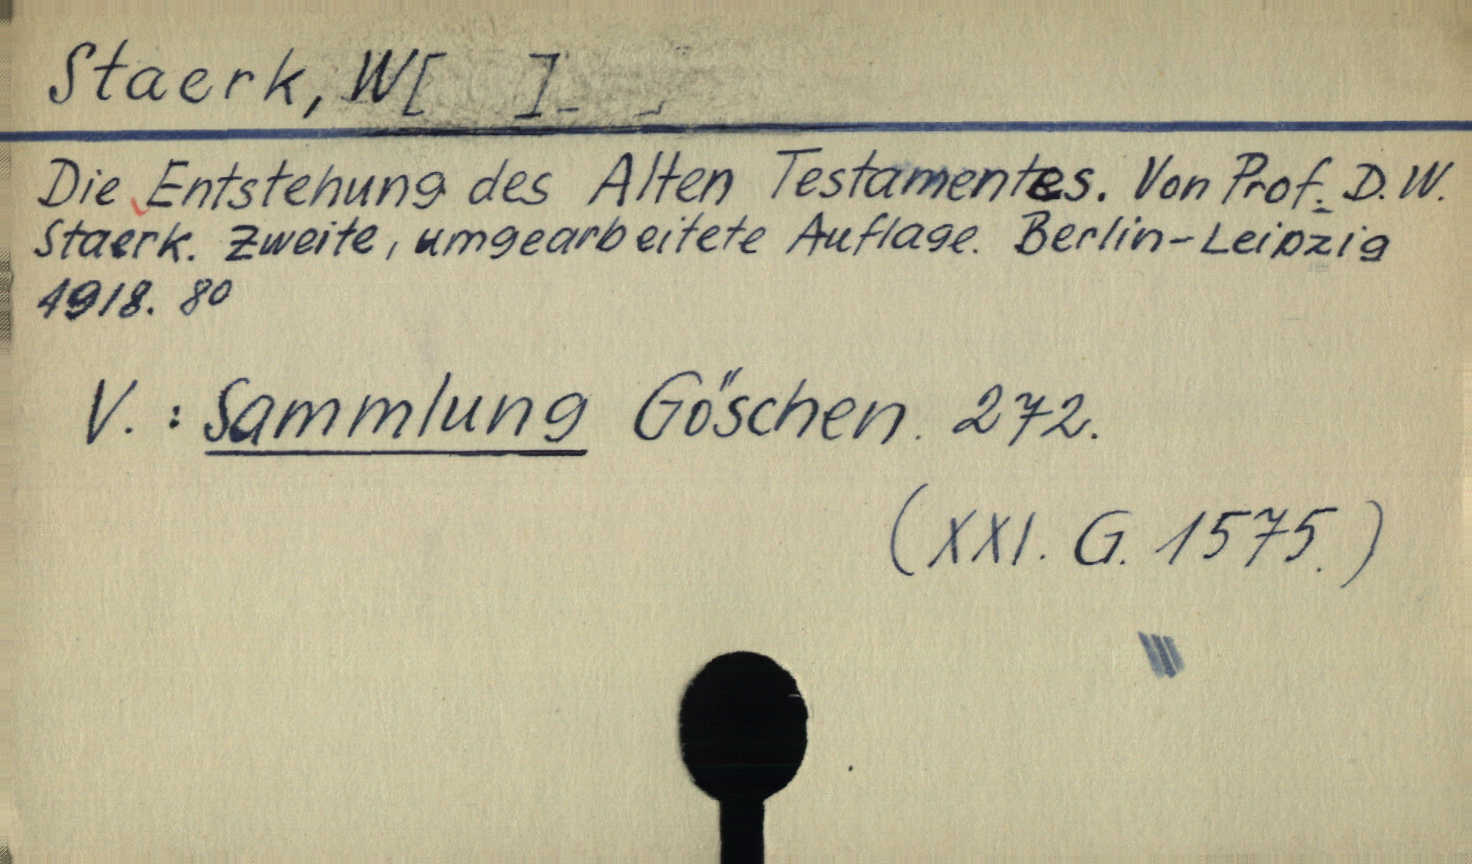 Staerk, W[ ]
Die Entstehung des Alten Testamentes. Von Prof. D. W.
Staerk. Zweite, umgearbeitete Auflage. Berlin-Leipzig
1918. 8⁰
V. : Sammlung Göschen. 272.
(XXI. G. 1575.)